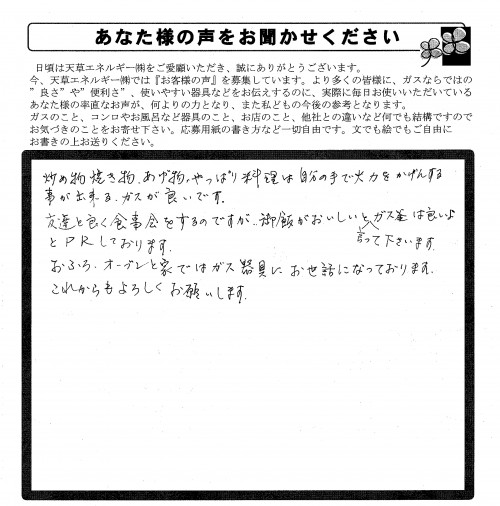 あなた様の声をお聞かせください
日頃は天草エネルギー㈱をご愛顧いただき、誠にありがとうございます。
今、天草エネルギー㈱では『お客様の声』を募集しています。より多くの皆様に、ガスならではの
”良さ”や”便利さ”、使いやすい器具などをお伝えするのに、実際に毎日お使いいただいている
あなた様の率直なお声が、何よりの力となり、また私どもの今後の参考となります。
ガスのこと、コンロやお風呂など器具のこと、お店のこと、他社との違いなど何でも結構ですので
お気づきのことをお寄せ下さい。応募用紙の書き方など一切自由です。文でも絵でもご自由に
お書きの上お送りください。
炒め物、焼き物、あげ物、やっぱり料理は自分の手で火力をかげんする
事が出来る、ガスが良いです。
友達と良く食事会をするのですが、御飯がおいしいと言って下さいます、ガス釜は良いよ
とPRしております。
おふろ、オーブンと家ではガス器具にお世話になっております。
これからもよろしくお願いします。